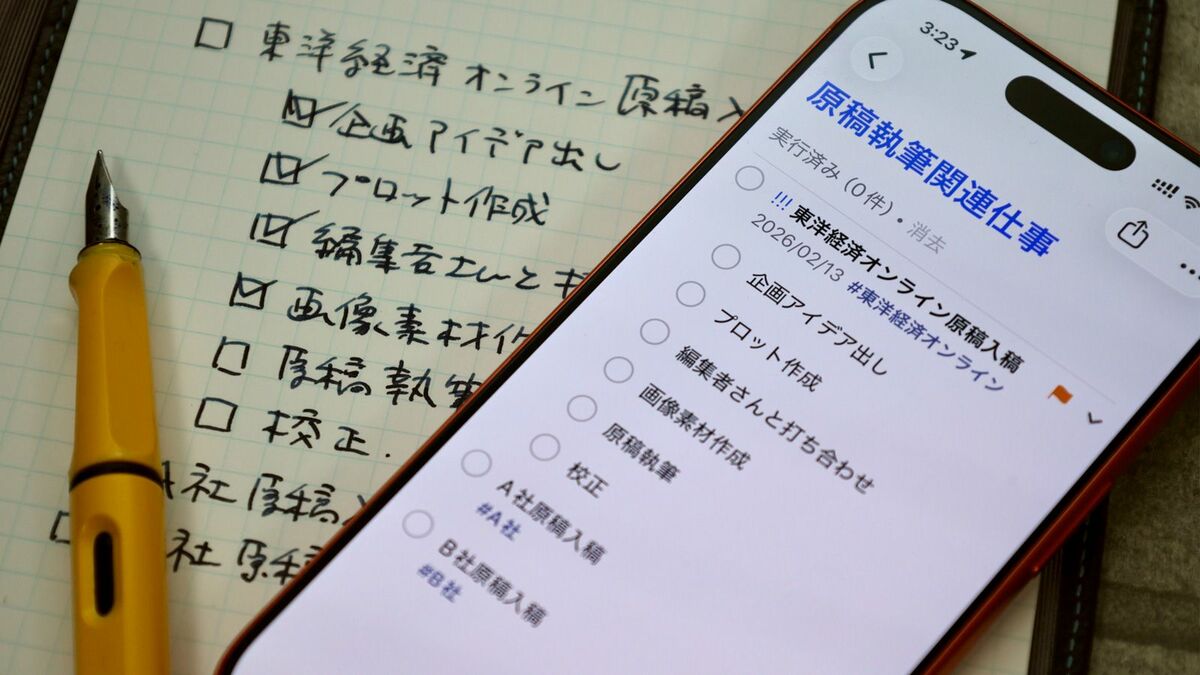 東洋経済 オンライン 原稿入
企画 アイデア出し
プロット作成
編集者さんと
画像素材作
原稿執筆
校正.
A社原稿
社 原稿
3:23
原稿執筆関連仕事
実行済み（0件）・消去
!!! 東洋経済オンライン原稿入稿
2026/02/13 #東洋経済オンライン
企画アイデア出し
プロット作成
編集者さんと打ち合わせ
画像素材作成
原稿執筆
校正
A社原稿入稿
#A社
B社原稿入稿
#B社